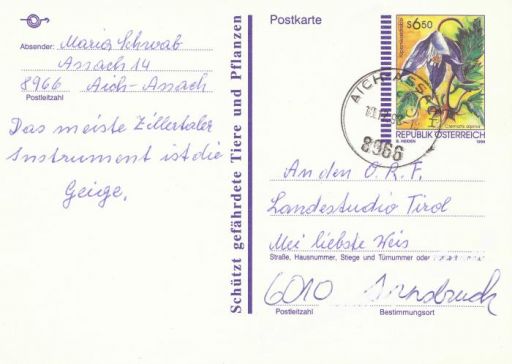 Postkarte
Absender: Maria Schwab
Assach 14
8966 Aich-Assach
Postleitzahl
Das meiste Zillertaler
Instrument ist die
Geige,
Schützt gefährdete Tiere und Pflanzen
S 6,50
Alpenwaldrebe
Clematis alpina
REPUBLIK ÖSTERREICH
1994
AICH-ASSACH
8966
An den O.R.F.
Landesstudio Tirol
Mei liebste Weis
Straße, Hausnummer, Stiege und Türnummer oder
6010 Innsbruck
Postleitzahl Bestimmungsort